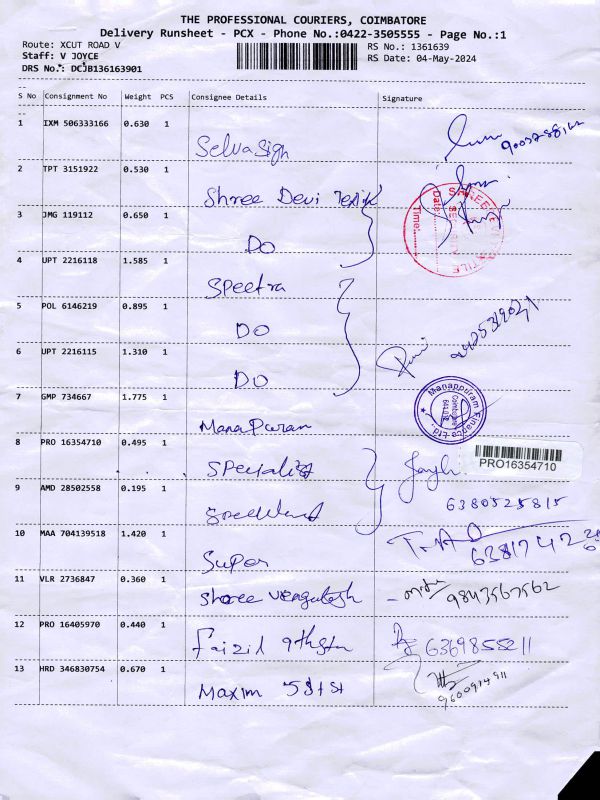 THE PROFESSIONAL COURIERS, COIMBATORE
Delivery Runsheet - PCX - Phone No.:0422-3505555 - Page No.:1
Route: XCUT ROAD V RS No.: 1361639
Staff: V JOYCE RS Date: 04-May-2024
DRS No.: DCJB136163901
S No Consignment No Weight PCS Consignee Details Signature
1 IXM 506333166 0.630 1
Selvasign
2 TPT 3151922 0.530 1
Shree Devi
3 JMG 119112 0.650 1
DO
4 UPT 2216118 1.585 1
Spectra
5 POL 6146219 0.895 1
DO
6 UPT 2216115 1.310 1
DO
7 GMP 734667 1.775 1
Manapuram
Manappuram Finance Ltd.
Coimbatore
8 PRO 16354710 0.495 1
Specialist
PRO16354710
9 AMD 28502558 0.195 1
6380525815
10 MAA 704139518 1.420 1
Super
11 VLR 2736847 0.360 1
Shree Vengatesh 9843567562
12 PRO 16405970 0.440 1
Faizid 9thstr 6369855211
13 HRD 346830754 0.670 1
Maxim 9600914911
Date:
Time: